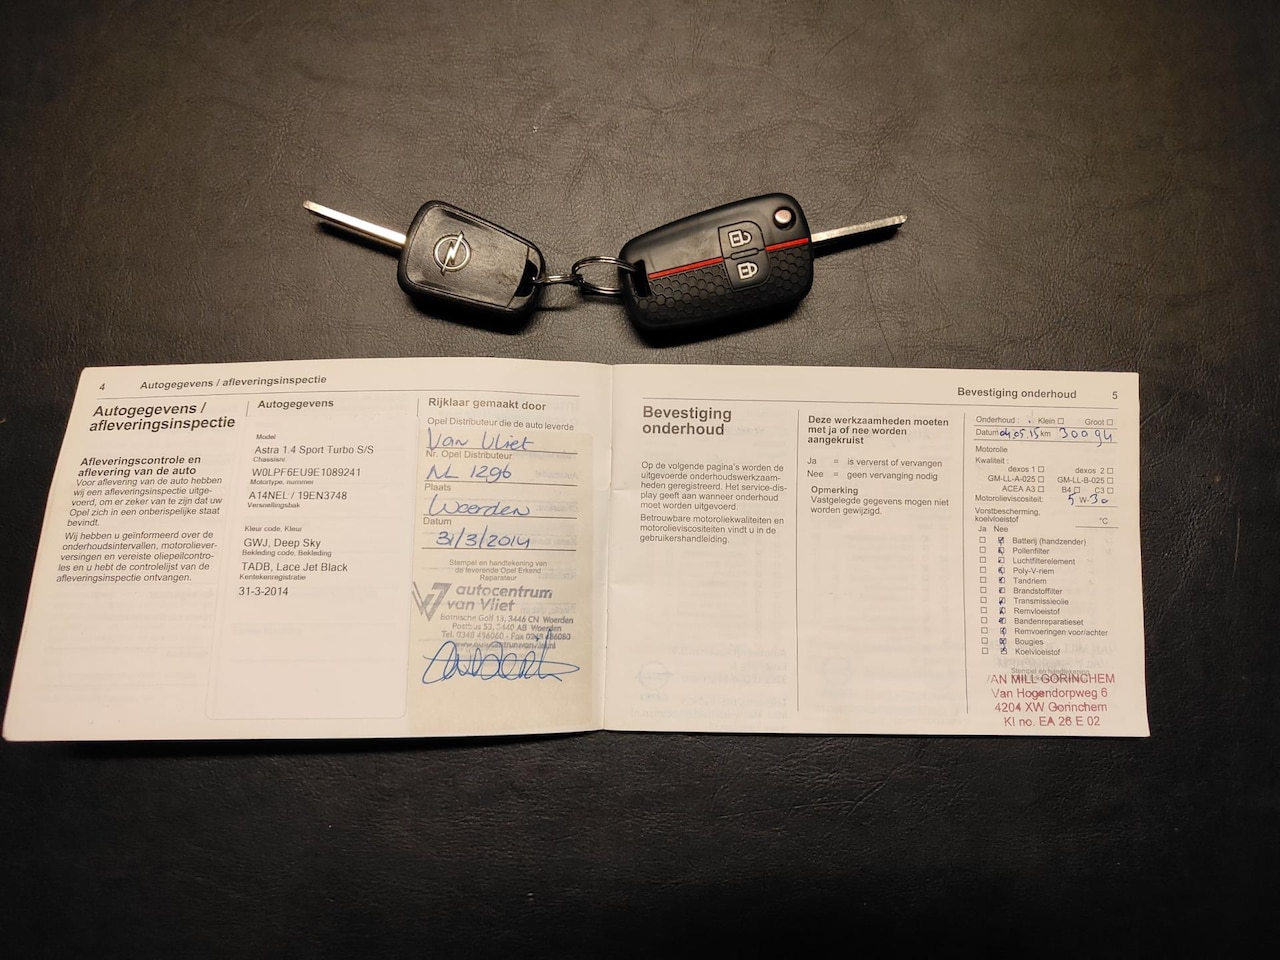 4
Autogegevens / afleveringsinspectie
Autogegevens /
afleveringsinspectie
Afleveringscontrole en
aflevering van de auto
Voor aflevering van de auto hebben
wij een afleveringsinspectie uitge-
voerd, om er zeker van te zijn dat uw
Opel zich in een onberispelijke staat
bevindt.
Wij hebben u geïnformeerd over de
onderhoudsintervallen, motoroliever-
versingen en vereiste oliepeilcontro-
les en u hebt de controlelijst van de
afleveringsinspectie ontvangen.
Autogegevens
Model
Astra 1.4 Sport Turbo S/S
Chassisnr.
W0LPF6EU9E1089241
Motortype, nummer
A14NEL / 19EN3748
Versnellingsbak
Kleur code, Kleur
GWJ, Deep Sky
Bekleding code, Bekleding
TADB, Lace Jet Black
Kentekenregistratie
31-3-2014
Rijklaar gemaakt door
Opel Distributeur die de auto leverde
Van Vliet
Nr. Opel Distributeur
NL 1296
Plaats
Woerden
Datum
31/3/2014
Stempel en handtekening van
de leverende Opel Erkend
Reparateur
autocentrum
van Vliet
Botnische Golf 13, 3446 CN Woerden
Postbus 53, 3440 AB Woerden
Tel. 0348 436060 - Fax 0348
Bevestiging onderhoud
5
Bevestiging
onderhoud
Op de volgende pagina's worden de
uitgevoerde onderhoudswerkzaam-
heden geregistreerd. Het service-dis-
play geeft aan wanneer onderhoud
moet worden uitgevoerd.
Betrouwbare motoroliekwaliteiten en
motorolieviscositeiten vindt u in de
gebruikershandleiding.
Deze werkzaamheden moeten
met ja of nee worden
aangekruist
Ja = is ververst of vervangen
Nee = geen vervanging nodig
Opmerking
Vastgelegde gegevens mogen niet
worden gewijzigd.
Onderhoud : Klein Groot
Datum 04.05.15 km 30094
Motorolie
Kwaliteit :
dexos 1 dexos 2
GM-LL-A-025 GM-LL-B-025
ACEA A3 B4 C3
Motorolieviscositeit: 5 W- 30
Vorstbescherming,
koelvloeistof °C
Ja Nee
Batterij (handzender)
Pollenfilter
Luchtfilterelement
Poly-V-riem
Tandriem
Brandstoffilter
Transmissieolie
Remvloeistof
Bandenreparatieset
Remvoeringen voor/achter
Bougies
Koelvloeistof
Stempel en handtekening
VAN MILL GORINCHEM
Van Hogendorpweg 6
4204 XW Gorinchem
KI no. EA 26 E 02